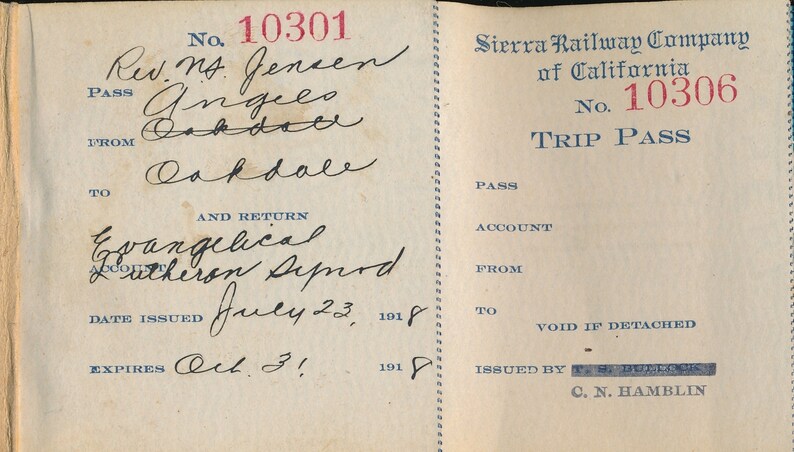 No. 10301
Rev. N.S. Jensen
PASS
Angels
FROM Oakdale
Oakdale
TO
AND RETURN
Evangelical
ACCOUNT Lutheran Synod
DATE ISSUED July 23, 1918
EXPIRES Oct. 31 1918
Sierra Railway Company
of California
No. 10306
TRIP PASS
PASS
ACCOUNT
FROM
TO
VOID IF DETACHED
ISSUED BY T. S. BULLOCK
C. N. HAMBLIN